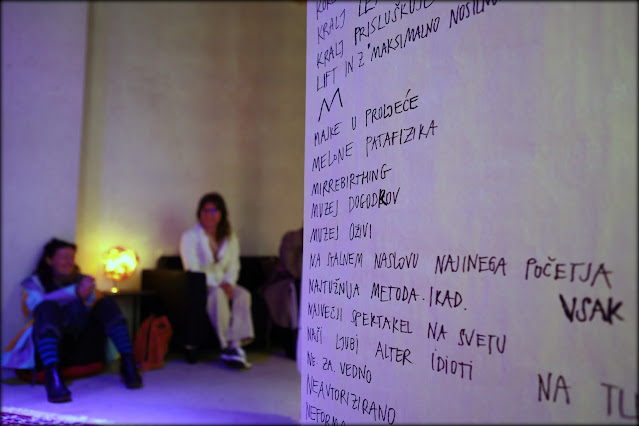 KRALJ
KRALJ PRISLUŠKUJE
LIFT IN Z MAKSIMALNO NOSILNO
M
MAJKE U PROLJEĆE
MELONE PATAFIZIKA
MIRREBIRTHING
MUZEJ DOGODKOV
MUZEJ OŽIVI
NA STALNEM NASLOVU NAJINEGA POČETJA
NAJTUŽNIJA METODA. IKAD. VSAK
NAJVEČJI SPEKTAKEL NA SVETU
NAŠI LJUBI ALTER IDIOTI NA
NE ZA VEDNO
NEAVTORIZIRANO